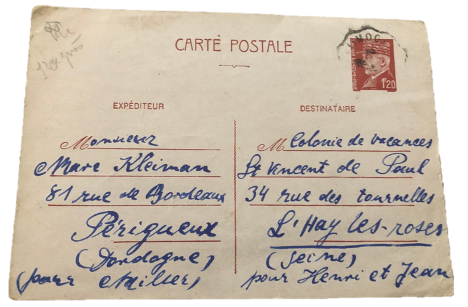 CARTE POSTALE
1f20
EXPÉDITEUR
Monsieur
Marc Kleiman
81 rue de Bordeaux
Périgueux
(Dordogne)
(pour
DESTINATAIRE
M Colonie de vacances
St Vincent de Paul
34 rue des tournelles
L'Hay les-roses
(Seine)
pour Henri et Jean